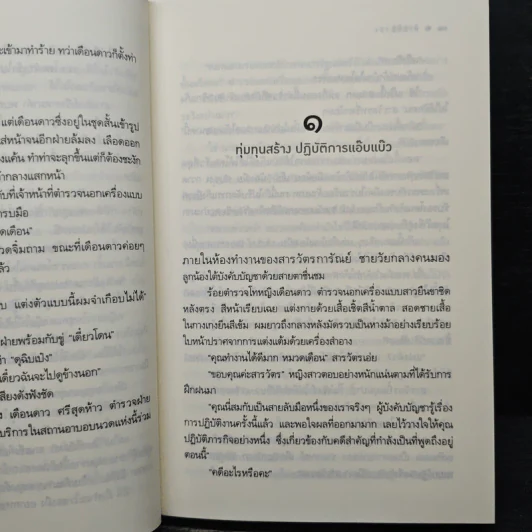 ะเข้ามาทำร้าย ทว่าเดือนดาวก็ตั้งท่า
แต่เดือนดาวซึ่งอยู่ในชุดสั้นเข้ารูป
ส่หน้าจนอีกฝ่ายล้มลง เลือดออก
งแค้น ทำท่าจะลุกขึ้นแต่ก็ต้องชะงัก
ากลางแสกหน้า
กับที่เจ้าหน้าที่ตำรวจนอกเครื่องแบบ
ารบมือ
ดเดือน"
วดจิ่มถาม ขณะที่เดือนดาวค่อยๆ
ล้ว
บ แต่งตัวแบบนี้ผมจำเกือบไม่ได้"
ฝ่ายพร้อมกับขู่ "เดี๋ยวโดน"
ำ "ตุฉิบเป๋ง"
เดี๋ยวฉันจะไปดูข้างนอก"
สียงดังฟังชัด
ง เดือนดาว ศรีสุดห้าว ตำรวจฝ่าย
บริการในสถานอาบอบนวดแห่งนี้ร่วม
๑
ทุ่มทุนสร้าง ปฏิบัติการแอ๊บแบ๊ว
ภายในห้องทำงานของสารวัตรการัณย์ ชายวัยกลางคนมอง
ลูกน้องใต้บังคับบัญชาด้วยสายตาชื่นชม
ร้อยตำรวจโทหญิงเดือนดาว ตำรวจนอกเครื่องแบบสาวยืนขาชิด
หลังตรง สีหน้าเรียบเฉย แต่งกายด้วยเสื้อเชิ้ตสีน้ำตาล สอดชายเสื้อ
ในกางเกงยีนสีเข้ม ผมยาวถึงกลางหลังมัดรวบเป็นหางม้าอย่างเรียบร้อย
ใบหน้าปราศจากการแต่งแต้มด้วยเครื่องสำอาง
"คุณทำงานได้ดีมาก หมวดเดือน" สารวัตรเอ่ย
"ขอบคุณค่ะสารวัตร" หญิงสาวตอบอย่างหนักแน่นตามที่ได้รับการ
ฝึกฝนมา
"คุณนี่สมกับเป็นสายลับมือหนึ่งของเราจริงๆ ผู้บังคับบัญชารู้เรื่อง
การปฏิบัติงานครั้งนี้แล้ว และพอใจผลที่ออกมามาก เลยไว้วางใจให้คุณ
ปฏิบัติภารกิจอย่างหนึ่ง ซึ่งเกี่ยวข้องกับคดีสำคัญที่กำลังเป็นที่พูดถึงอยู่
ตอนนี้"
"คดีอะไรหรือคะ"